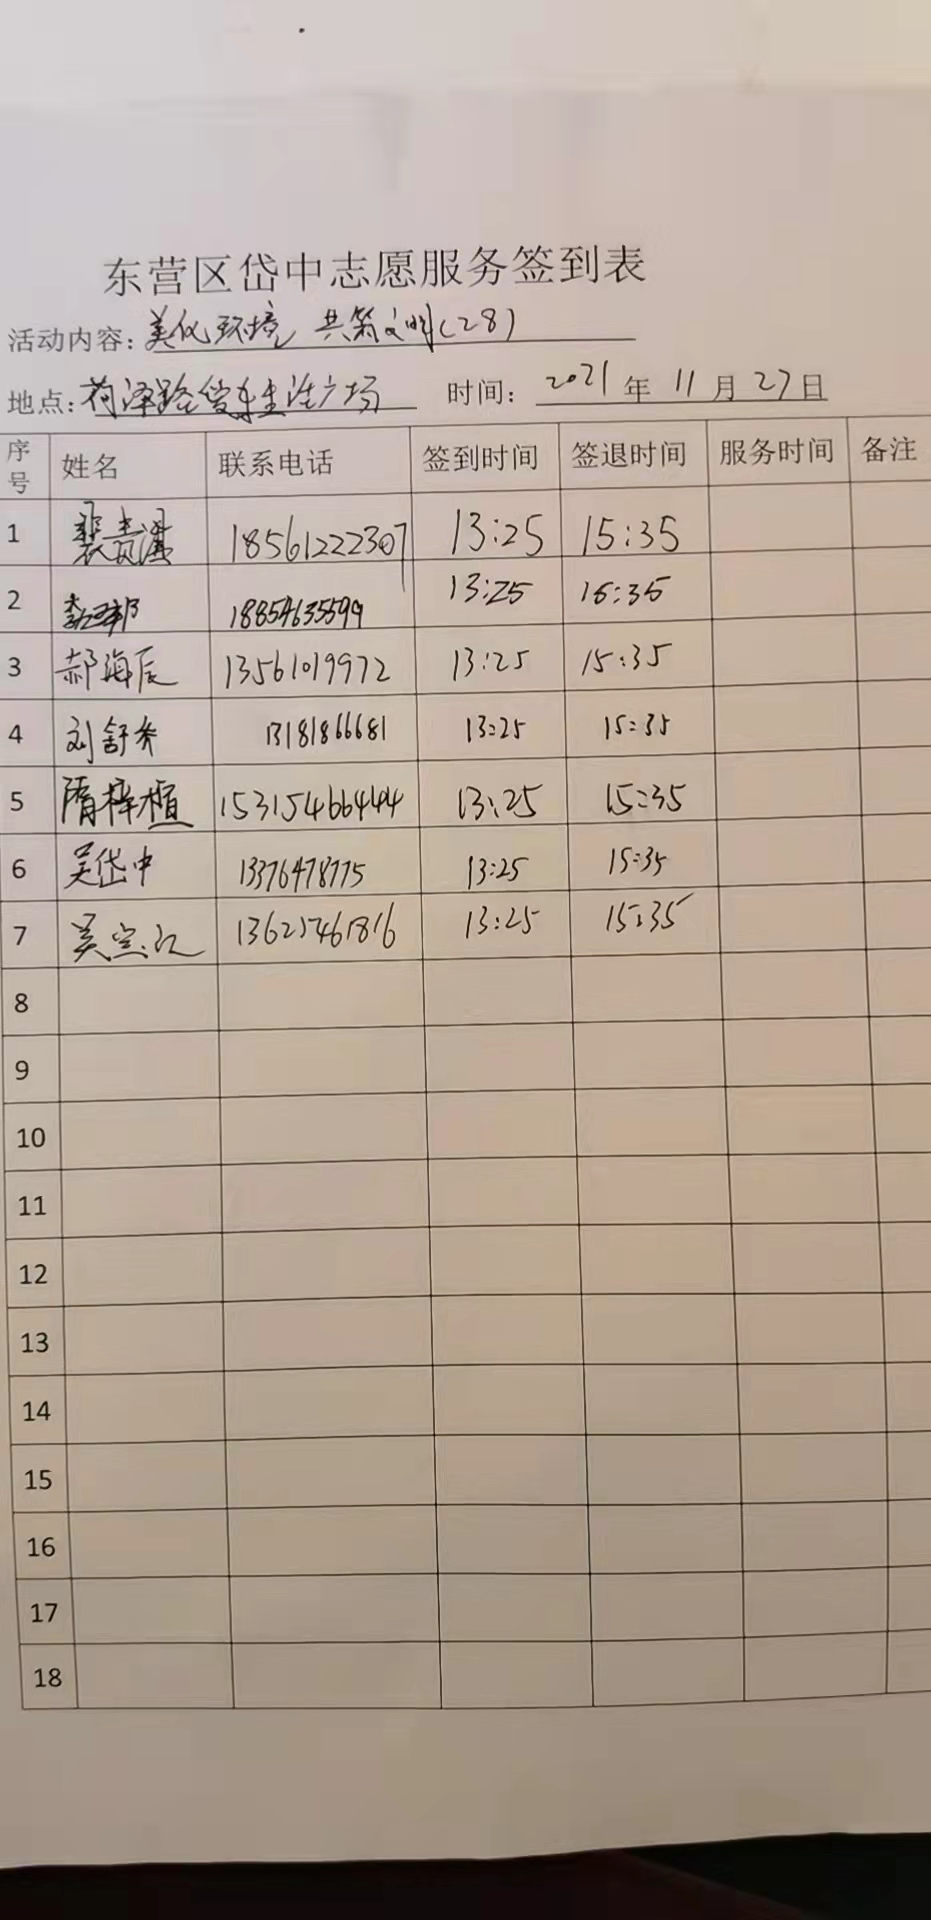 东营区岱中志愿服务签到表
活动内容: 美化环境 共筑文明(28)
地点: 荷泽路 生活广场 时间: 2021 年 11 月 27 日
序号 姓名 联系电话 签到时间 签退时间 服务时间 备注
1 裴贵 18561222307 13:25 15:35
2 18854635599 13:25 15:35
3 郝海辰 13561019972 13:25 15:35
4 刘舒 13181866681 13:25 15:35
5 隋梓植 15315466444 13:25 15:35
6 吴岱中 13376478775 13:25 15:35
7 吴 13:25 15:35
8
9
10
11
12
13
14
15
16
17
18